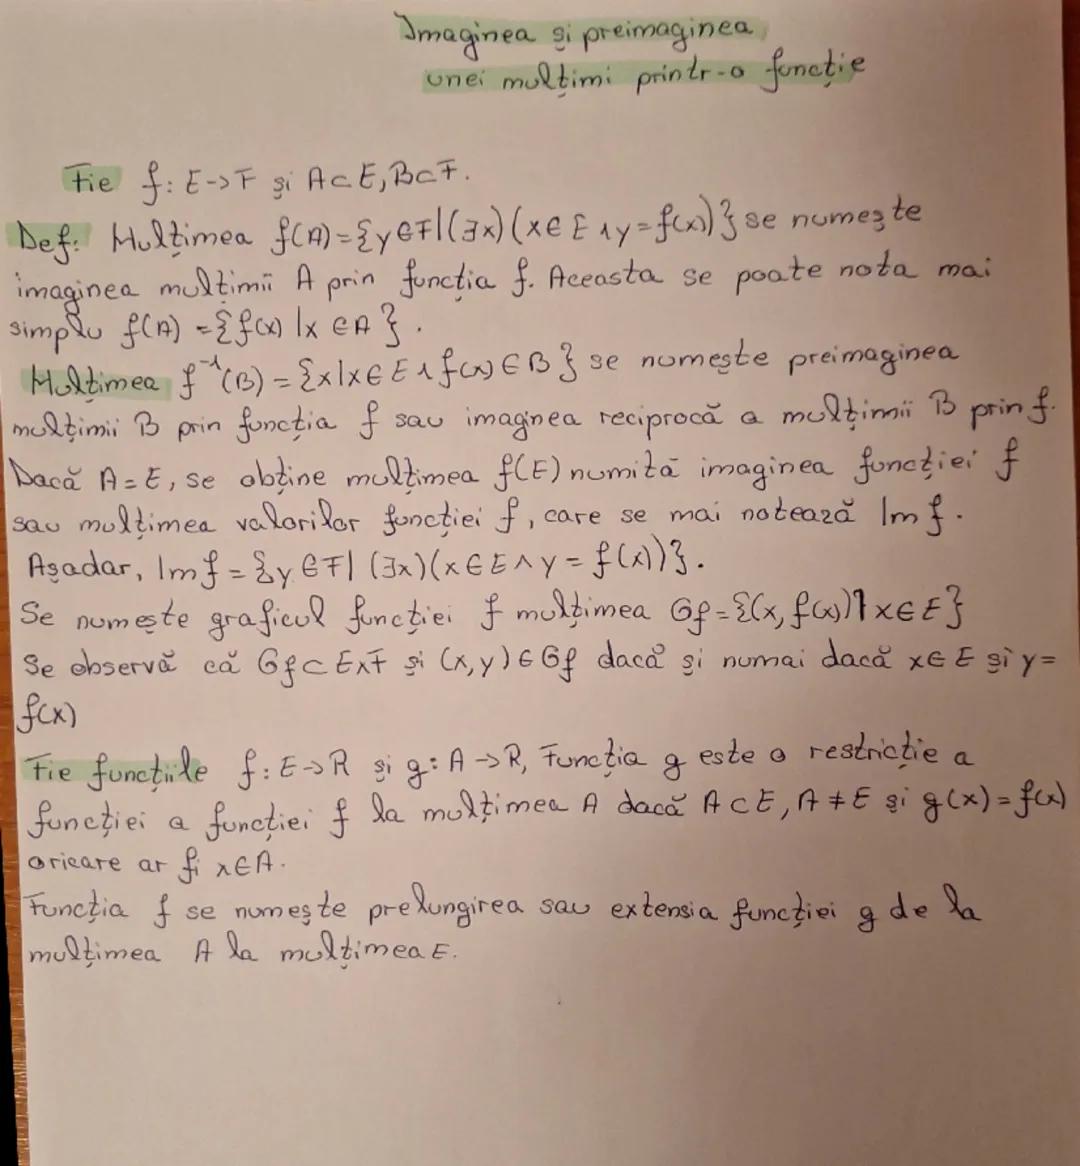 Imaginea și preimaginea
unei mulțimi printr-o funcție
Fie f: E->F și A⊂E, B⊂F.
Def: Mulțimea f(A)={y∈F|(∃x)(x∈E∧y=f(x))} se numește
imaginea mulțimii A prin funcția f. Aceasta se poate nota mai
simplu f(A)={f(x)|x∈A}.
Mulțimea f⁻¹(B)={x|x∈E∧f(x)∈B} se numește preimaginea
mulțimii B prin funcția f sau imaginea reciprocă a mulțimii B prin f.
Dacă A=E, se obține mulțimea f(E) numită imaginea funcției f
sau mulțimea valorilor funcției f, care se mai notează Im f.
Așadar, Im f={y∈F| (∃x)(x∈E∧y=f(x))}.
Se numește graficul funcției f mulțimea Gf={(x,f(x))| x∈E}
Se observă că Gf⊂E×F și (x,y)∈Gf dacă și numai dacă x∈E și y=
f(x)
Fie funcțiile f: E->R și g: A->R, Funcția g este o restricție a
funcției a funcției f la mulțimea A dacă A⊂E, A≠E și g(x)=f(x)
oricare ar fi x∈A.
Funcția f se numește prelungirea sau extensia funcției g de la
mulțimea A la mulțimea E.